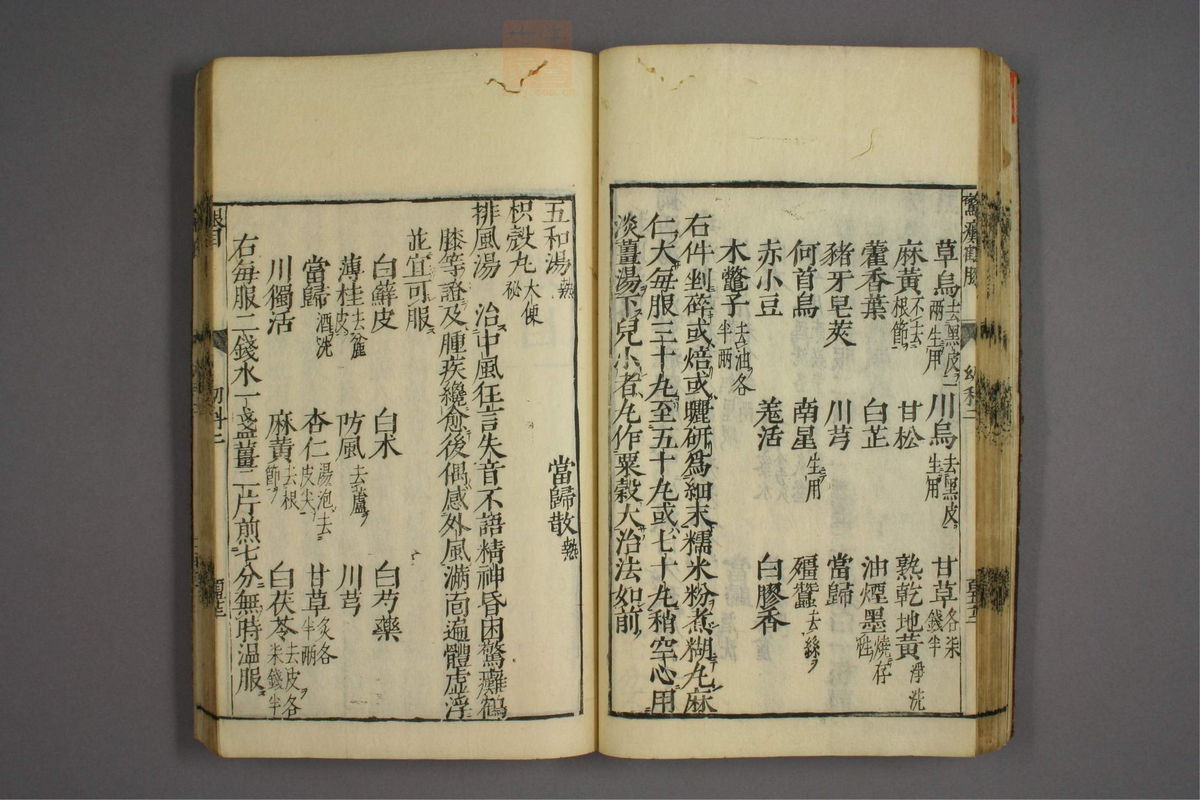 草烏去黑皮二兩生用 川烏去黑皮生用 甘草各柒錢半
麻黃不去根節 甘松 熟乾地黃淨洗
藿香葉 白芷 油煙墨燒存性
豬牙皂莢 川芎 當歸
何首烏 南星生用 殭蠶去絲
赤小豆 羗活 白膠香
木鼈子去油各半兩
右件剉碎或焙或曬研爲細末糯米粉煮糊丸麻
仁大每服三十丸至五十丸或七十丸稍空心用
淡薑湯下兒小者丸作粟穀大治法如前
幼科二
五和湯熱 當歸散熱
枳殼丸大便秘
排風湯 治中風狂言失音不語精神昏困驚癱鶴
膝等證及腫疾纔愈後偶感外風滿面遍體虛浮
並宜可服
白蘚皮 白朮 白芍藥
薄桂去麄皮 防風去蘆 川芎
當歸酒洗 杏仁湯泡去皮尖 甘草炙各半兩
川獨活 麻黃去根節 白茯苓去皮各柒錢半
右每服二錢水一盞薑二片煎七分無時温服